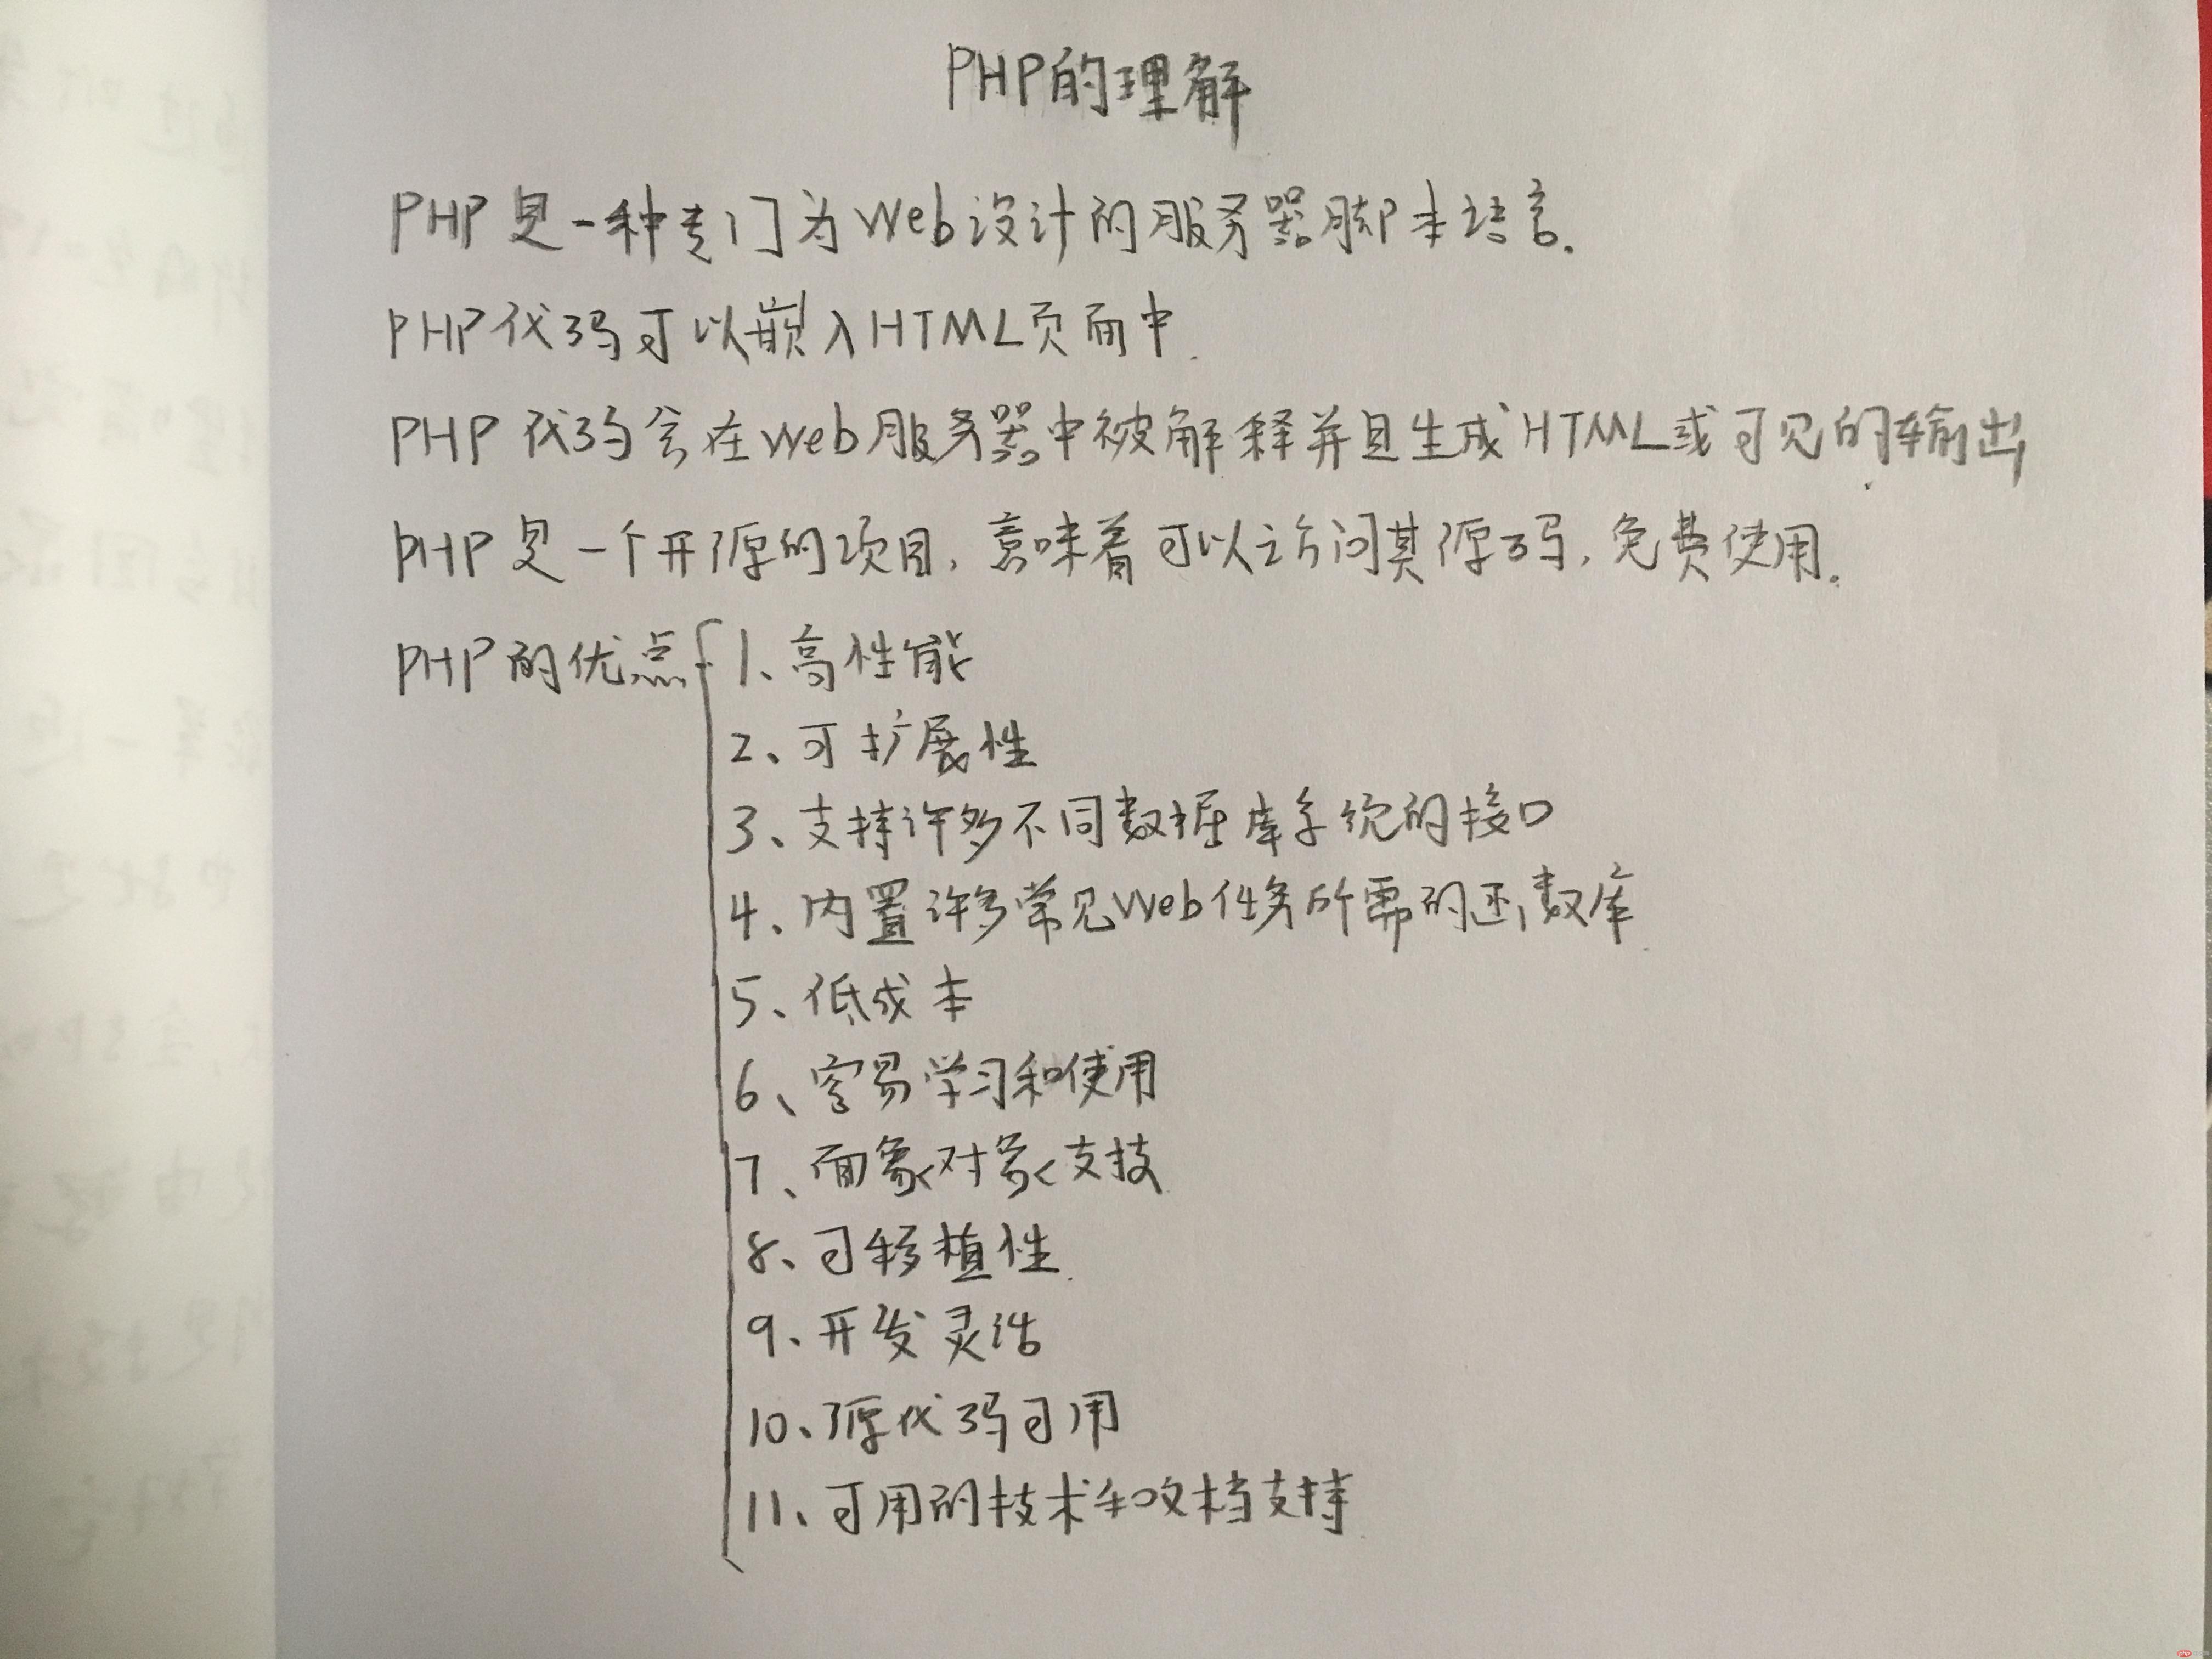 PHP的理解
PHP是一种专门为Web设计的服务器脚本语言.
PHP代码可以嵌入HTML页面中.
PHP代码会在Web服务器中被解释并且生成HTML或可见的输出
PHP是一个开源的项目,意味着可以访问其源码,免费使用.
PHP的优点 1、高性能
2、可扩展性
3、支持许多不同数据库系统的接口
4、内置许多常见Web任务所需的函数库
5、低成本
6、容易学习和使用
7、面象对象支技
8、可移植性
9、开发灵活
10、源代码可用
11、可用的技术和文档支持